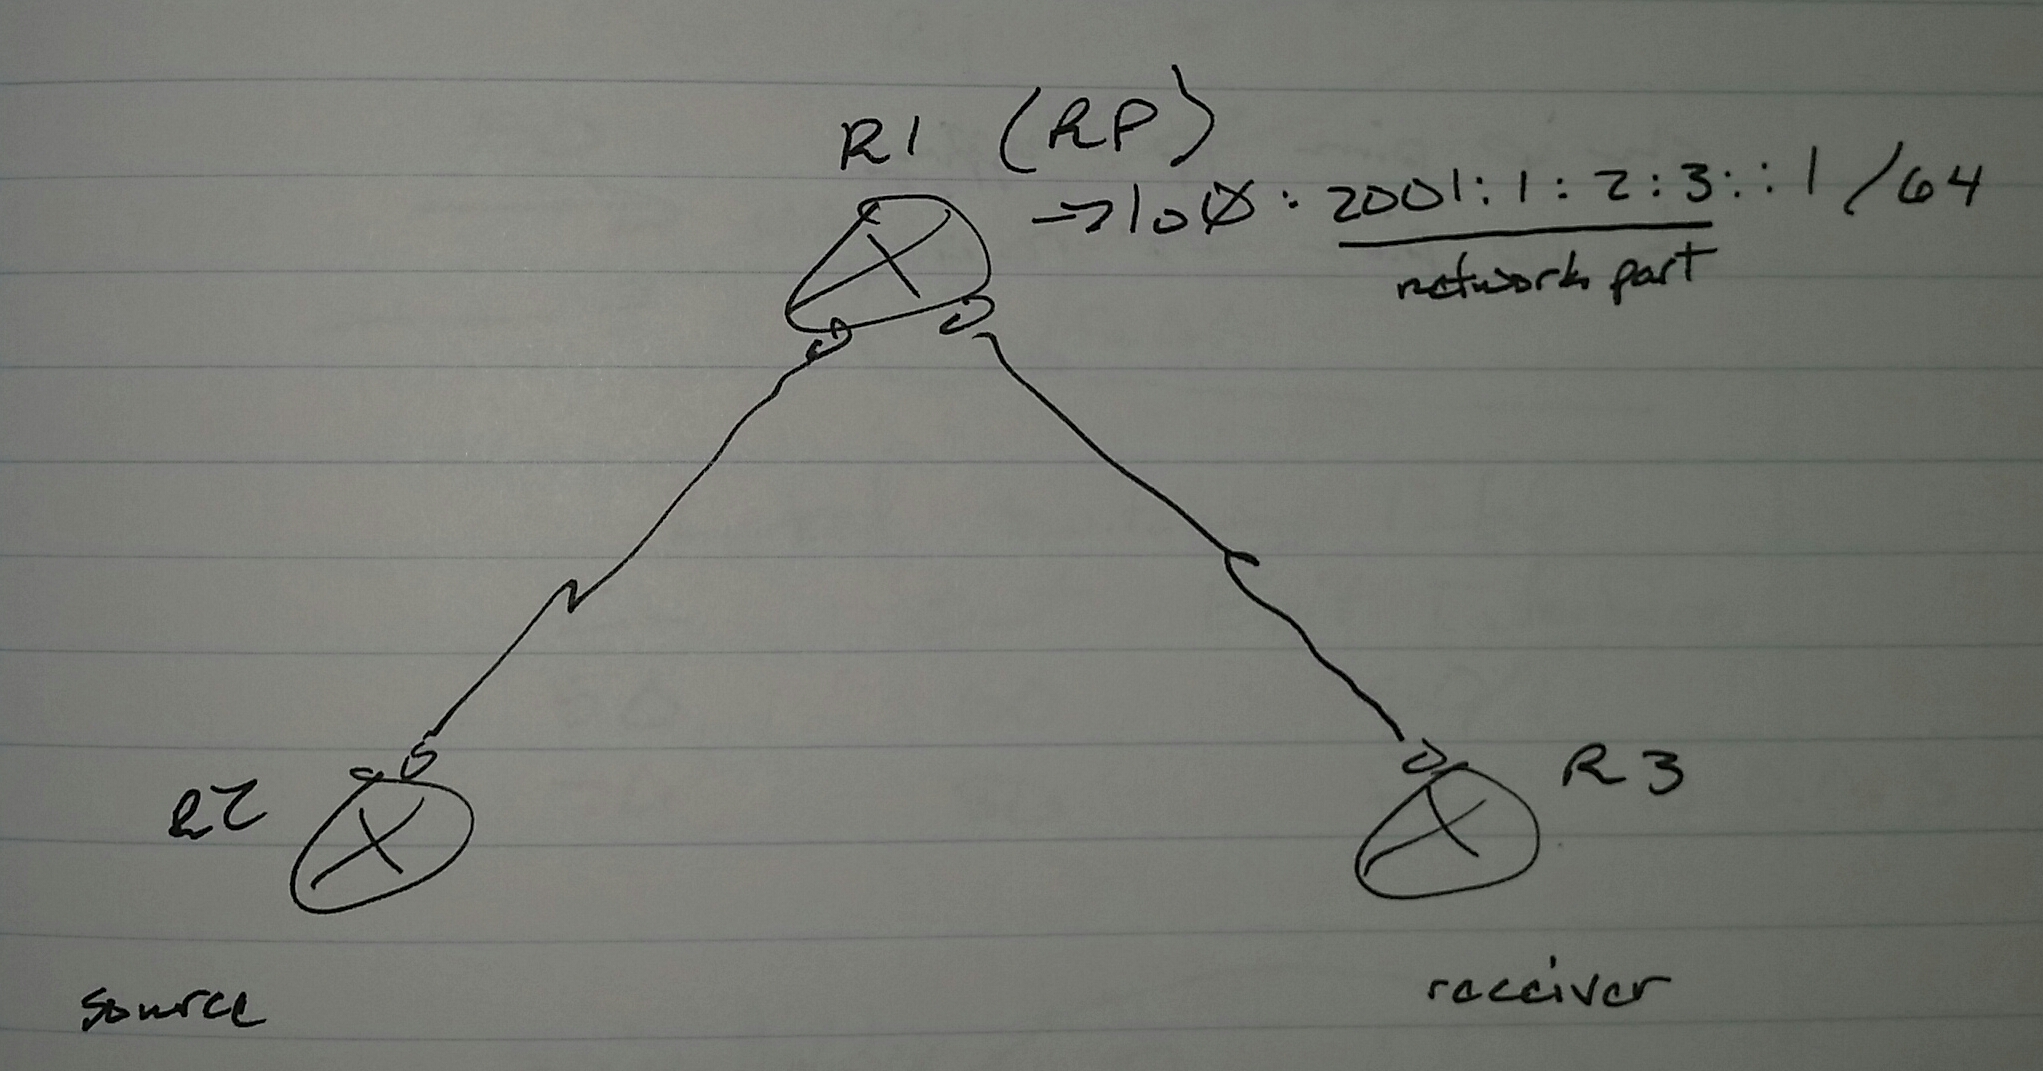 R1 (RP)
→ lo0: 2001:1:2:3::1/64
network part
R2
R3
source
receiver